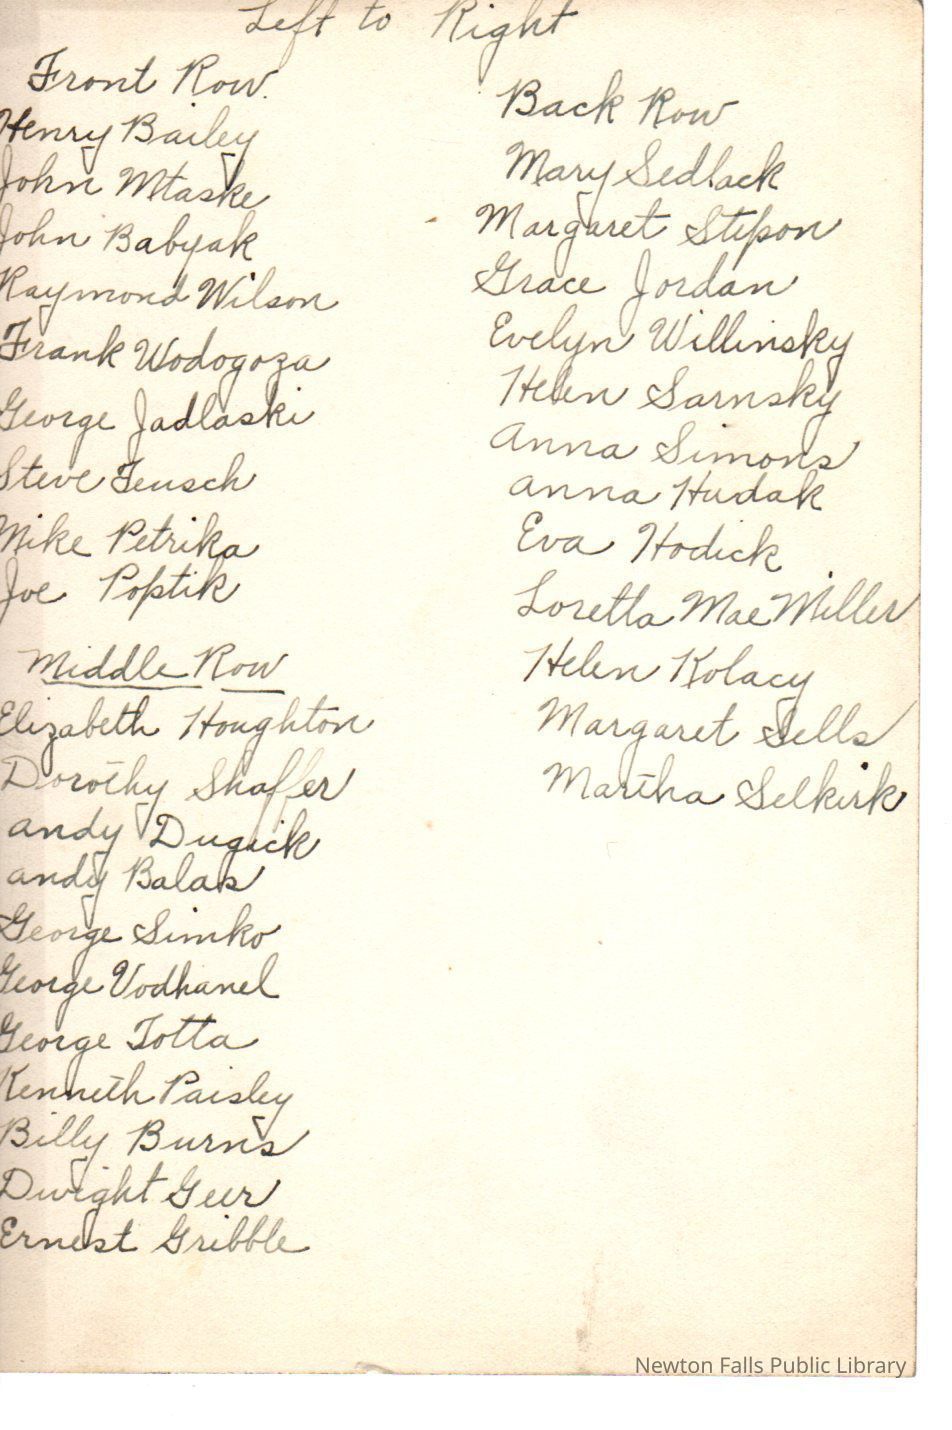 Left to Right
Front Row.
Henry Bailey
John Mtaske
John Babyak
Raymond Wilson
Frank Wodogoza
George Jadlaski
Steve Feusch
Mike Petrika
Joe Poptik
Middle Row
Elizabeth Houghton
Dorothy Shaffer
Andy Dugick
Andy Balas
George Simko
George Vodhanel
George Totta
Kenneth Paisley
Billy Burns
Dwight Geer
Ernest Gribble
Back Row
Mary Sedlack
Margaret Stipon
Grace Jordan
Evelyn Willinsky
Helen Sarnsky
Anna Simons
Anna Hudak
Eva Hodick
Loretta Mae Miller
Helen Kolacy
Margaret Sells
Martha Selkirk
Newton Falls Public Library